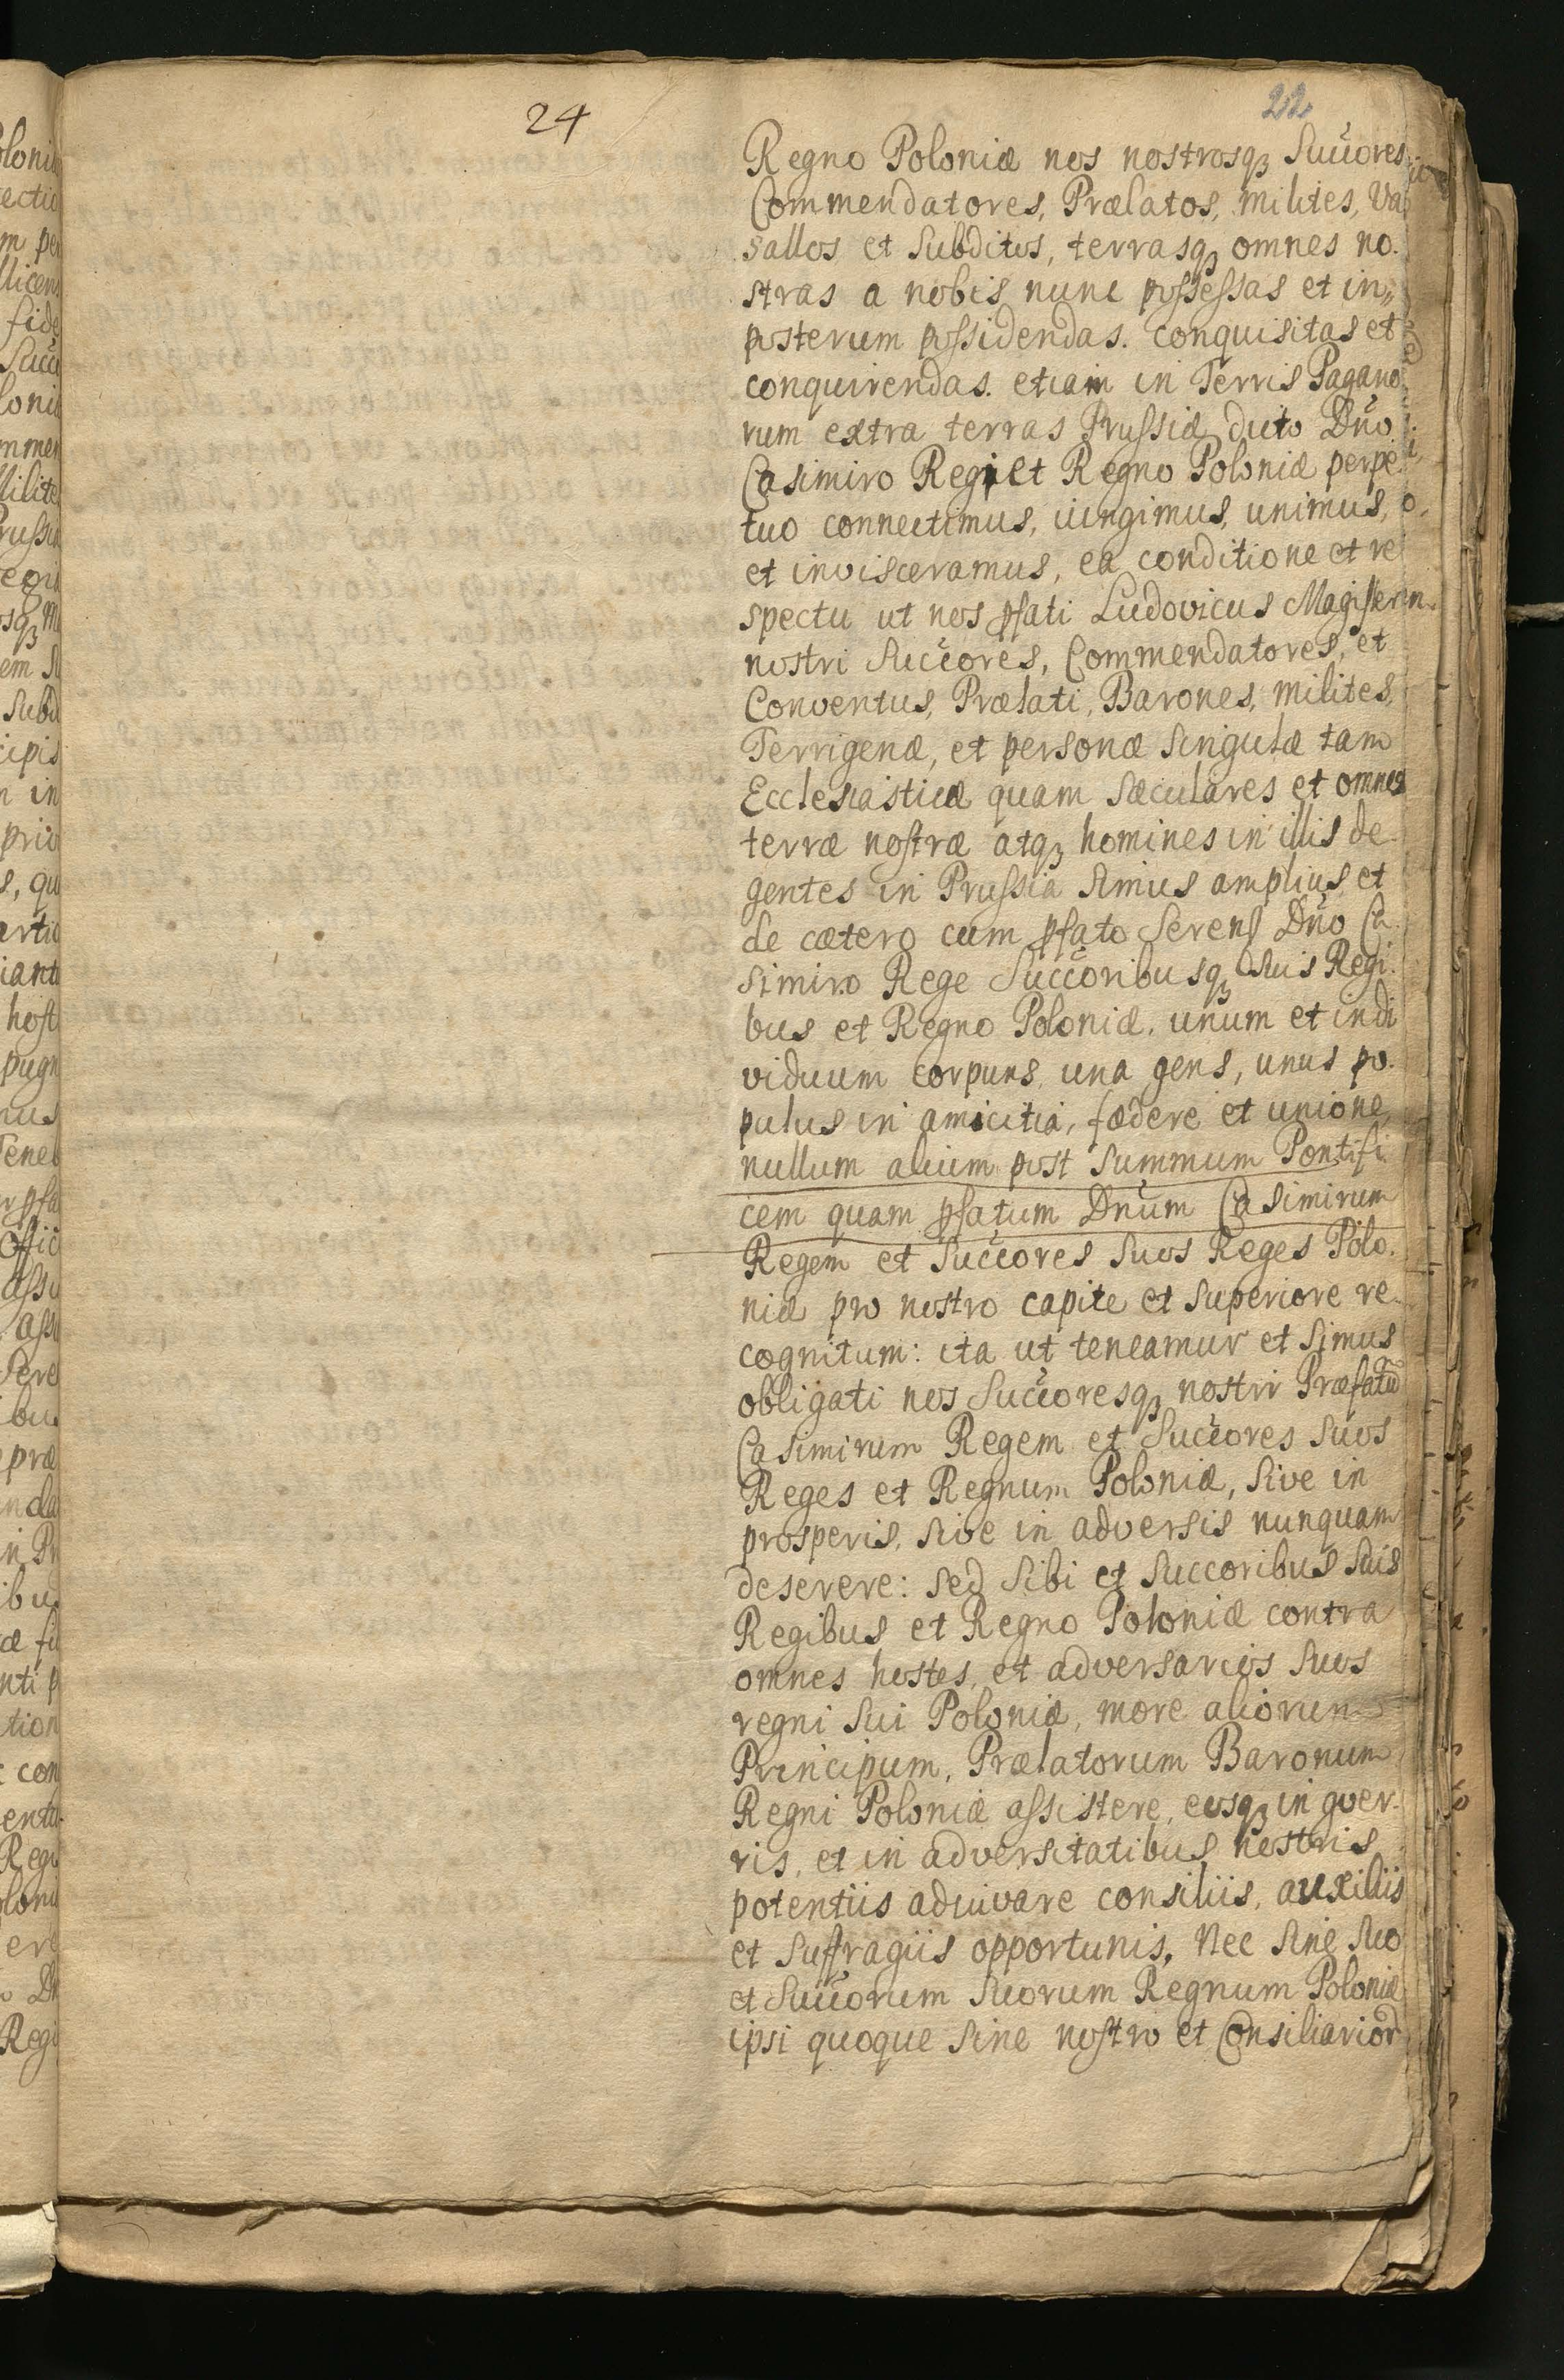 24
22
Regno Poloniæ nos nostrosqꝫ Succ̃ores
Commendatores, Prælatos, milites, Va
sallos et Subditos, terrasqꝫ omnes no.
stras a nobis nunc possessas et in„
posterum possidendas. conquisitas et
conquirendas. etiam in Terris Pagano
rum extra terras Prussiæ dicto Dño
Casimiro Regi et Regno Poloniæ perpe
tuo connectimus, iungimus, unimus,
et invisceramus, ea conditione et re
spectu ut nos pfati Ludovicus Magister
nostri Succ̃ores, Commendatores, et
Conventus, Prælati, Barones, milites,
Terrigenæ, et personæ singulæ tam
Ecclesiasticæ quam sæculares et omnes
terræ nostræ atqꝫ homines in illis de
gentes in Prussia simus amplius et
de cætero cum pfato Seren Dño Ca
simiro Rege Succ̃oribusqꝫ Suis Regi
bus et Regno Poloniæ. unum et indi
viduum corpuns una gens, unus po.
pulus in amicitia, fædere et unione
nullum alium post summum Pontifi
cem quam pfatum Dnũm Casimirum
Regem et Succ̃ores suos Reges Polo.
niæ pro nostro capite et superiore re
cognitum: ita ut teneamur et simus
obligati nos Succ̃oresqꝫ nostri Præfatũ
Casimirum Regem et Succ̃ores suos
Reges et Regnum Poloniæ, sive in
prosperis, sive in adversis nunquam
deserere: sed sibi et Succoribus suis
Regibus et Regno Poloniæ contra
omnes hostes, et adversarios suos
regni sui Poloniæ, more aliorum
Principum, Prælatorum Baronum
Regni Poloniæ assistere, eosqꝫ in gver-
ris, et in adversitatibus nostris
potentiis adiuvare consiliis, auxiliis
et suffragiis opportunis, Nec sine suo
et Succ̃orum suorum Regnum Poloniæ
ipsi quoque sine nostro et Consiliarior